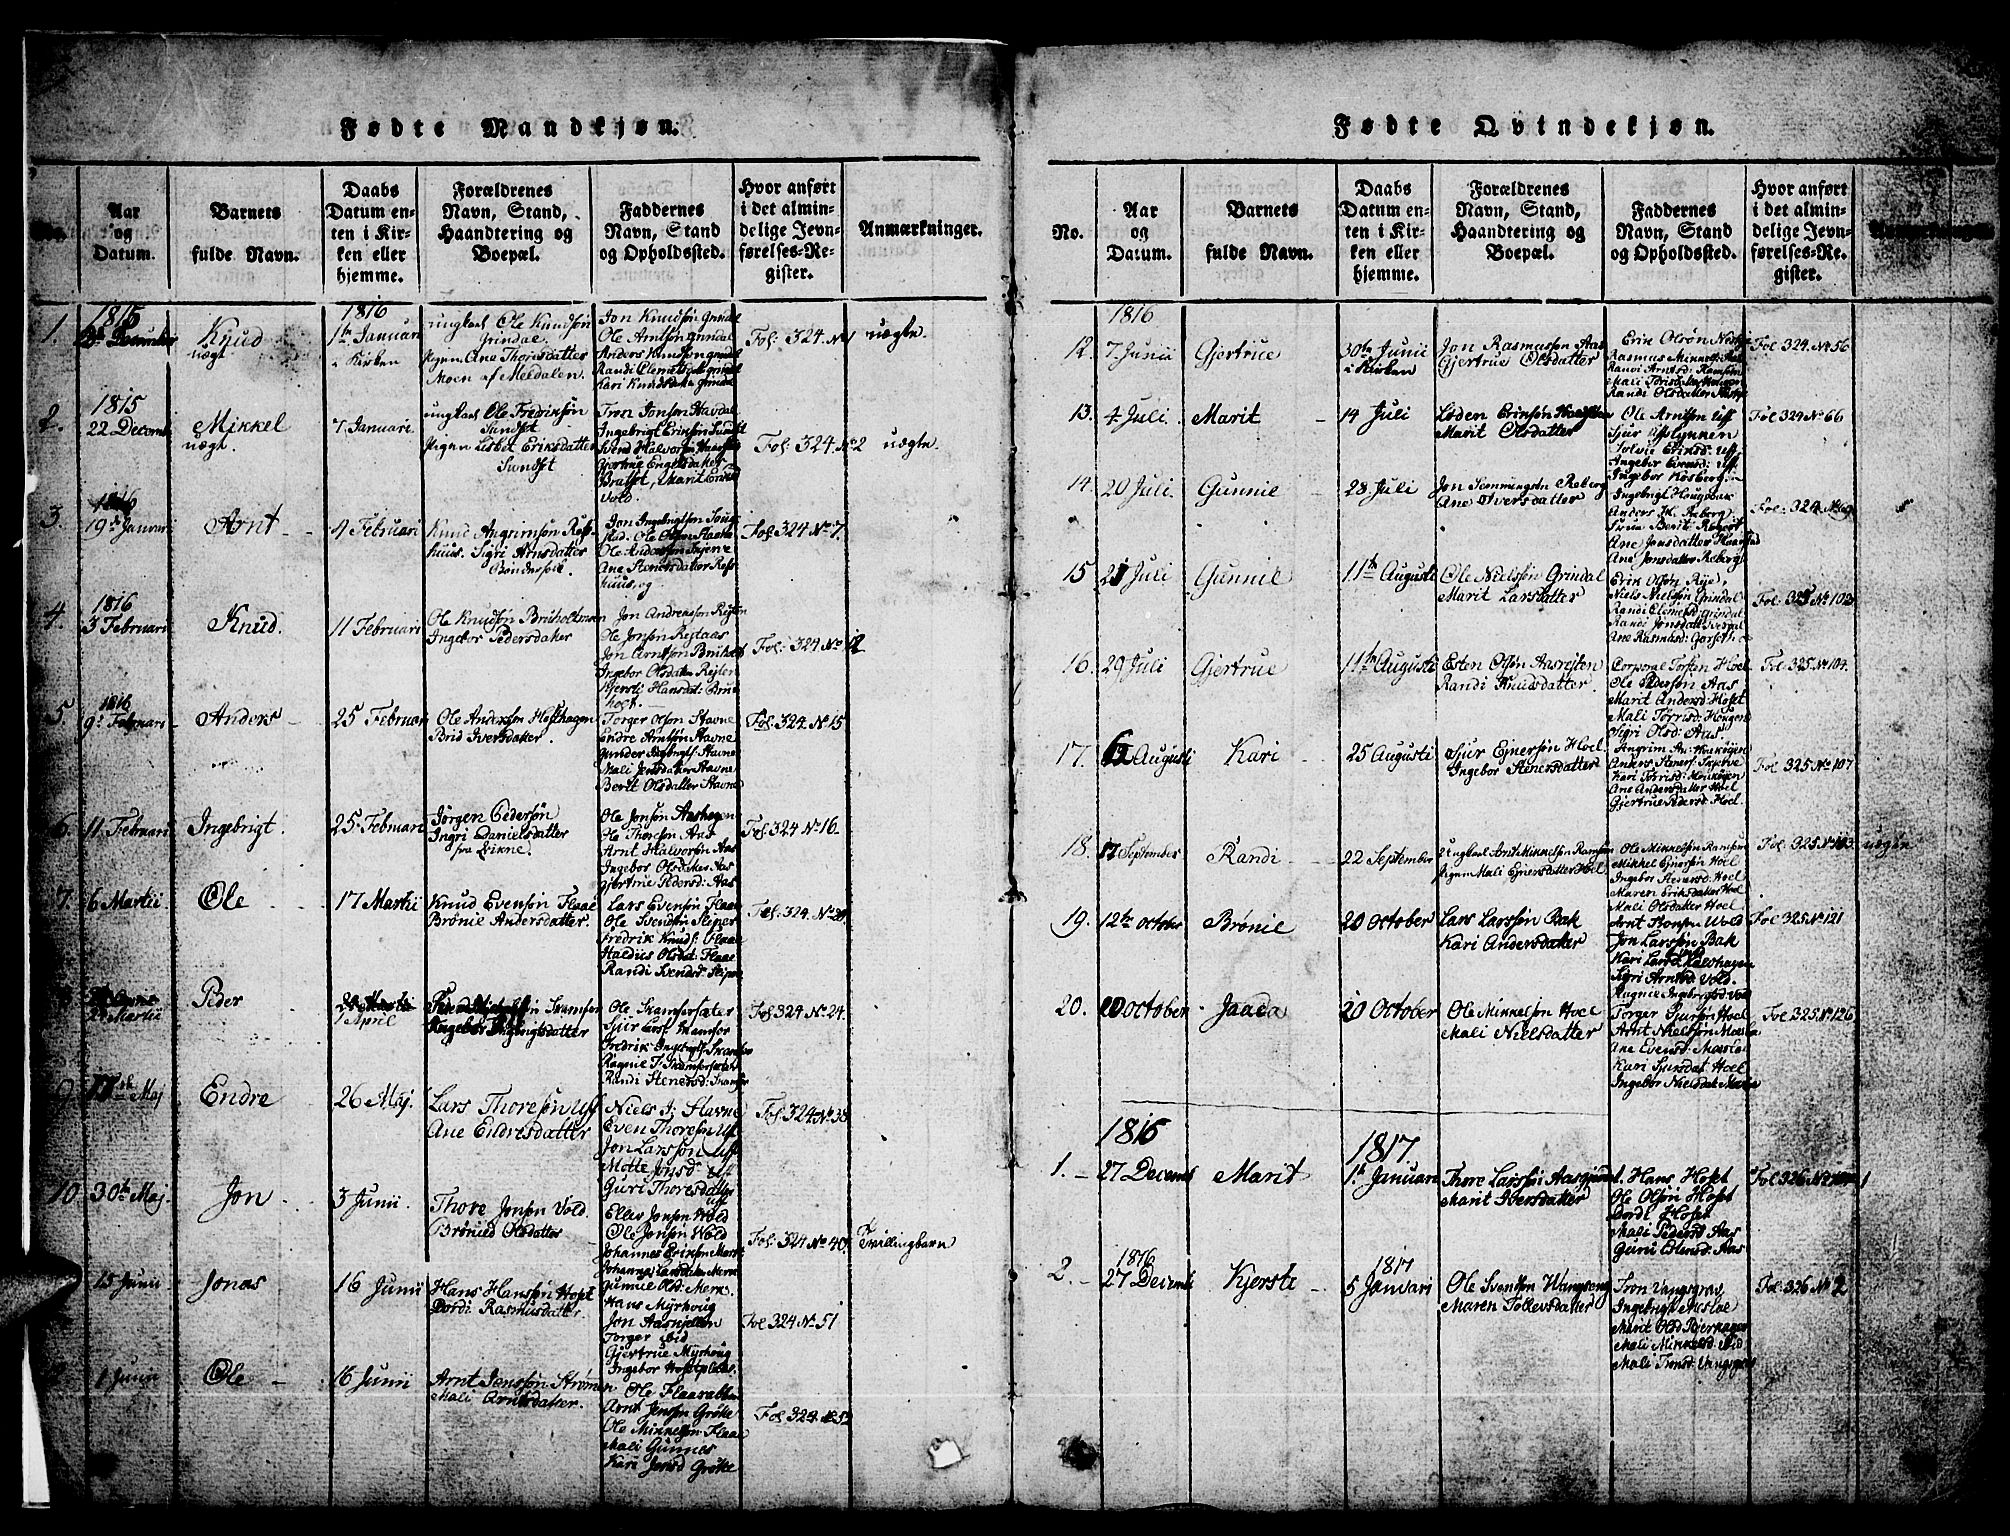 Fødte Mandkjøn.
Aar og Datum.
Barnets fulde Navn.
Daabs Datum enten i Kirken eller hjemme.
Forældrenes Navn, Stand, Haandtering og Boepæl.
Faddernes Navn, Stand og Opholdssted.
Hvor anført i det almindelige Jevnførelses-Register.
Anmærkninger.
1.
1815
December
Knud
uægt
1816
1te Januari
i Kirken
ungkarl Ole Knudsøn
Grindal
Pigen Ane Thoresdatter
Moen af Meldalen.
Jon Knudsøn Grindal
Ole Arntsøn Grindal
Anders Knudsøn Grindal
Kari Knudsdatter Grindal
Fol: 324 No 1
uægte.
2.
1815
22 Decemb
Mikkel
uægt.
7 Januari.
ungkarl Ole Fredriksøn
Sundset
Pigen Lisbet Eriksdatter
Sundset
Tron Jonsøn Havdal
Ingebrigt Eriksøn Sundset
Svend Halvorsøn
Gjertrue Engelsdatter
Bratset, Marit
Vold.
Fol: 324 No 2
uægte.
3.
1816
19de Januari
Arnt
4 Februari
Knud Angrimsøn Refs-
huus. Sigri Arnsdatter
Bønderfolk.
Jon Ingebrigtsøn
Ole Olsøn Stavne
Ole Andersøn Skjerve
Ane Stenersdatter Refs
huus, og
Fol: 324 No 7.
4.
1816
3 Februari
Knud.
11 Februari
Ole Knudsøn Bruholtmoen
Ingebor Pedersdatter
Jon Andreassøn Rejten
Ole Jonsøn Rejtaas
Jon Arntsøn
Ingebor Olsdatter Rejten
Kjersti Hansdat: Bru
holt.
Fol: 324 No 12
5.
1816
9de Februari
Anders
25 Februari
Ole Andersøn Hofshagen
Brid Iversdatter.
Torger Olsøn Stavne
Endre Arntsøn Stavne
Gunder Ingebrigts: Stavne
Mali Jensdatter Stavne
Berit Olsdatter Stavne
Fol: 324 No 15
6.
11 Februari
Ingebrigt.
25 Februari
Jørgen Pedersøn
Ingri Danielsdatter
fra Qvikne.
Ole Jonsøn Aashagen
Ole Thoresøn Aas
Arnt Halvorsøn Aas
Ingebor Olsdatter Aas
Gjertrue Pedersd: Aas
Fol: 324 No 16.
7.
6 Martii
Ole
17 Martii
Knud Evensøn Flaae
Brønie Andersdatter.
Lars Evensøn Flaae
Ole Svendsøn Sliper
Fredrik Knuds: Flaae
Haldius Olsdat: Flaae
Randi Svends: Sliper
Fol: 324 No
Martii
Peder
1 April
Ingebor Ingebrigtsdatter
Ole Skamfersæter
Sjur Lars: Skamfer
Fredrik Ingebrigts: Skamfer
Ragnil T: Skamfersæter
Randi Stenersd: Skamfer
Fol: 324 No 24.
Maj
Endre
26 Maj.
Lars Thoresøn Uf
Ane Endresdatter
Niels J: Stavne
Even Thoresøn Uf
Jon Larssøn Uf
Motte Jonsd: Uf
Guri Thoresdatter
Uf
Fol: 324 No 38
10
30te Maj.
Jon
3 Junii
Thore Jonsøn Vold.
Brønild Olsdatter
Ellev Jonsøn Wold
Ole Jonsøn Wold
Johannes Eriksøn Merk
Johanna Larsdatter Merk
Gunnil Olsd: Merk.
Fol: 324 No 40.
Tvillingbarn
15 Junii
Jonas
16 Junii
Hans Hansøn Hoset
Dordi Rasmusdatter.
Hans Myrhoug
Jon Aasnjellen
Torger ibid
Gjertrue Myrhoug
Ingebor Hosetplads.
Fol 324 No 51
1 Junii
Ole
16 Junii
Arnt Jenssøn Strømen
Mali Arntsdatter.
Ole Flaarabben
Arnt Jensøn Grøtte
Ole Mikkelsøn Flaae
Mali Gunnes
Kari Jonsd Grøtte
Fol 324 No 52
Fødte Qvindekjøn.
No.
Aar og Datum.
Barnets fulde Navn.
Daabs Datum enten i Kirken eller hjemme.
Forældrenes Navn, Stand, Haandtering og Boepæl.
Faddernes Navn, Stand og Opholdssted.
Hvor anført i det almindelige Jevnførelses-Register.
Anmærkninger.
1816
12.
7 Junii
Gjertrue
30te Junii
i Kirken
Jon Rasmussøn Aas
Gjertrue Olsdatter
Erik Olsøn
Rasmus
Randi Arntsd: Ramsøn
Mali
Randi Olsdatter
Fol 324 No 56
13.
4 Juli.
Marit
14 Juli
Loden Eriksøn
Marit Olsdatter
Ole Arntsøn Uff
Sjur Uffslynnen
Solvie Eriksd: Uff.
Ingebor Evensd: Uff.
Ingebor Kosberg.
Fol 324 No 66
14.
20 Juli.
Gunnil
28. Juli
Jon Simmingsøn Roberg
Ane Iversdatter
Ingebrigt Hougbak
Anders H. Roberg.
Berit Roberg
Ane Jonsdatter
Ane Jonsdatter Roberg
Fol: 324 No 69
15
21 Juli
Gunnil
11te Augusti
Ole Nielssøn Grindal
Marit Larsdatter
Erik Olsøn Rise,
Niels Nielsøn Grindal
Randi Clemetsd: Grindal
Randi Jonsdatter
Ane Rasmusd: Gorset
Fol. 325 No 103
16.
29 Juli
Gjertrue
11te Augusti
Esten Olsøn Aasrejten
Randi Knudsdatter.
Corporal Torsten Hoel
Ole Pedersøn Aas
Marit Andersd: Hoset
Mali Torrisd: Hougen
Sigri Olsd: Aas
Fol. 325 No 104.
17.
6 Augusti
Kari
25 Augusti
Sjur Ejnersøn Hoel
Ingebor Stenersdatter
Angrim An:
Anders Steners: Skjerve
Kari Torrisd:
Ane Andersdatter Hoel
Gjertrue Pedersd: Hoel.
Fol 325 No 107
18.
17 September
Randi
22 September
Ungkarl Arnt Mikkelsøn Ramsøn
Pigen Mali Ejnersdatter Hoel
Ole Mikkelsøn Ramsøn
Mikkel Ejnersøn Hoel
Ingebor Stenersd: Hoel
Maren Eriksdatter Hoel
Mali Olsdatter Hoel
Fol 325 No 113.
uægte
19.
12te October
Brønil
20 October
Lars Larssøn Bak
Kari Andersdatter
Arnt Thorsøn Wold
Jon Larssøn Bak
Kari Larsd: Kaldhagen
Sigri Arntsd: Vold.
Ragnil Ingebrigtsd: Vold
Fol 325 No 121
20.
10 October
Jaada
20 October
Ole Mikkelsøn Hoel
Mali Nielsdatter
Torger Sjursøn Hoel
Arnt Nielssøn Mæsla
Ane Evensd: Mæsla
Kari Sjursdat: Hoel
Ingebor Nielsdat: Mæsla
Fol 325 No 126
1816
1817.
1.
27 Decemb
Marit
1te Januari
Thore Larssøn Aasgjerdet.
Marit Iversdatter
Hans Hoset
Ole Olsøn Hoset
Dordi Hoset
Mali Pedersd Aas
Guru Estensd: Aas
Fol 326 No 1
2.
1816
27 Decemb
Kjersti
1817
5 Januari
Ole Svendsøn Wangseng
Maren Tollevsdatter
Tron Vangsgrav
Ingebrigt Mæslae
Marit Olsd Bjerkager
Mali Mikkelsd: ibid
Mali Tronsd: Vangsgrav
Fol: 326 No 2